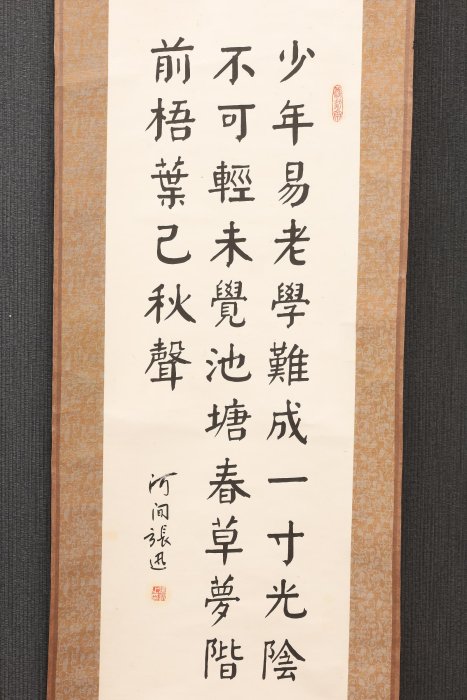 少年易老學難成一寸光陰
不可輕未覺池塘春草夢階
前梧葉己秋聲
河間張迅